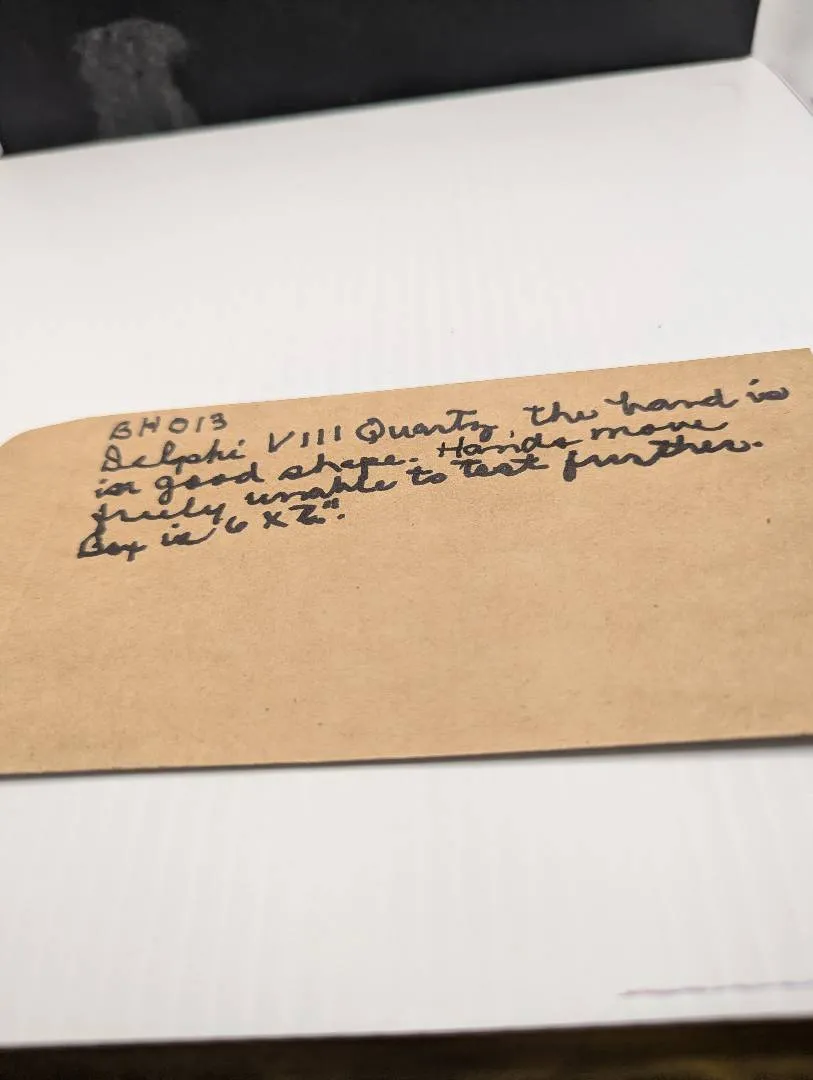 BH013
Delphi VIII Quartz, the hand is
in good shape. Hands move
freely unable to test further.
Box is 6 x 2".